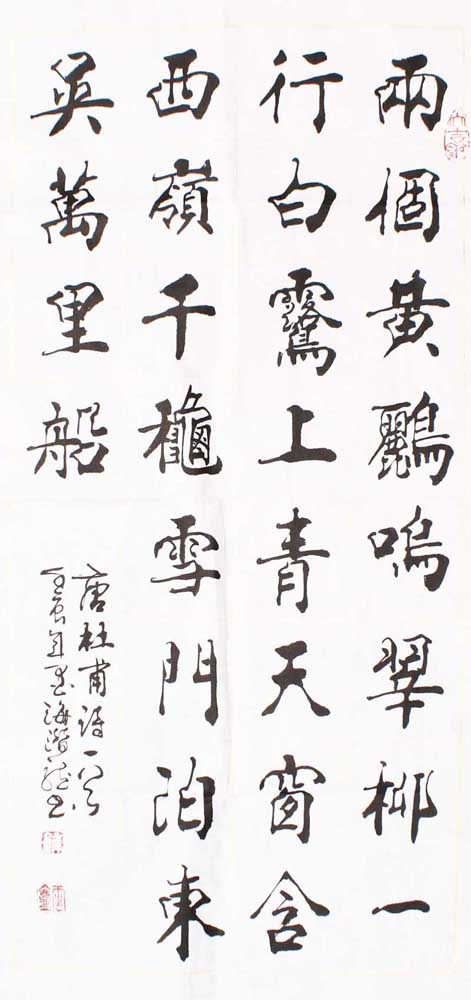 兩個黃鸝鳴翠柳一
行白鷺上青天窗含
西嶺千龝雪門泊東
吳萬里船
唐杜甫詩一首
壬辰年海書